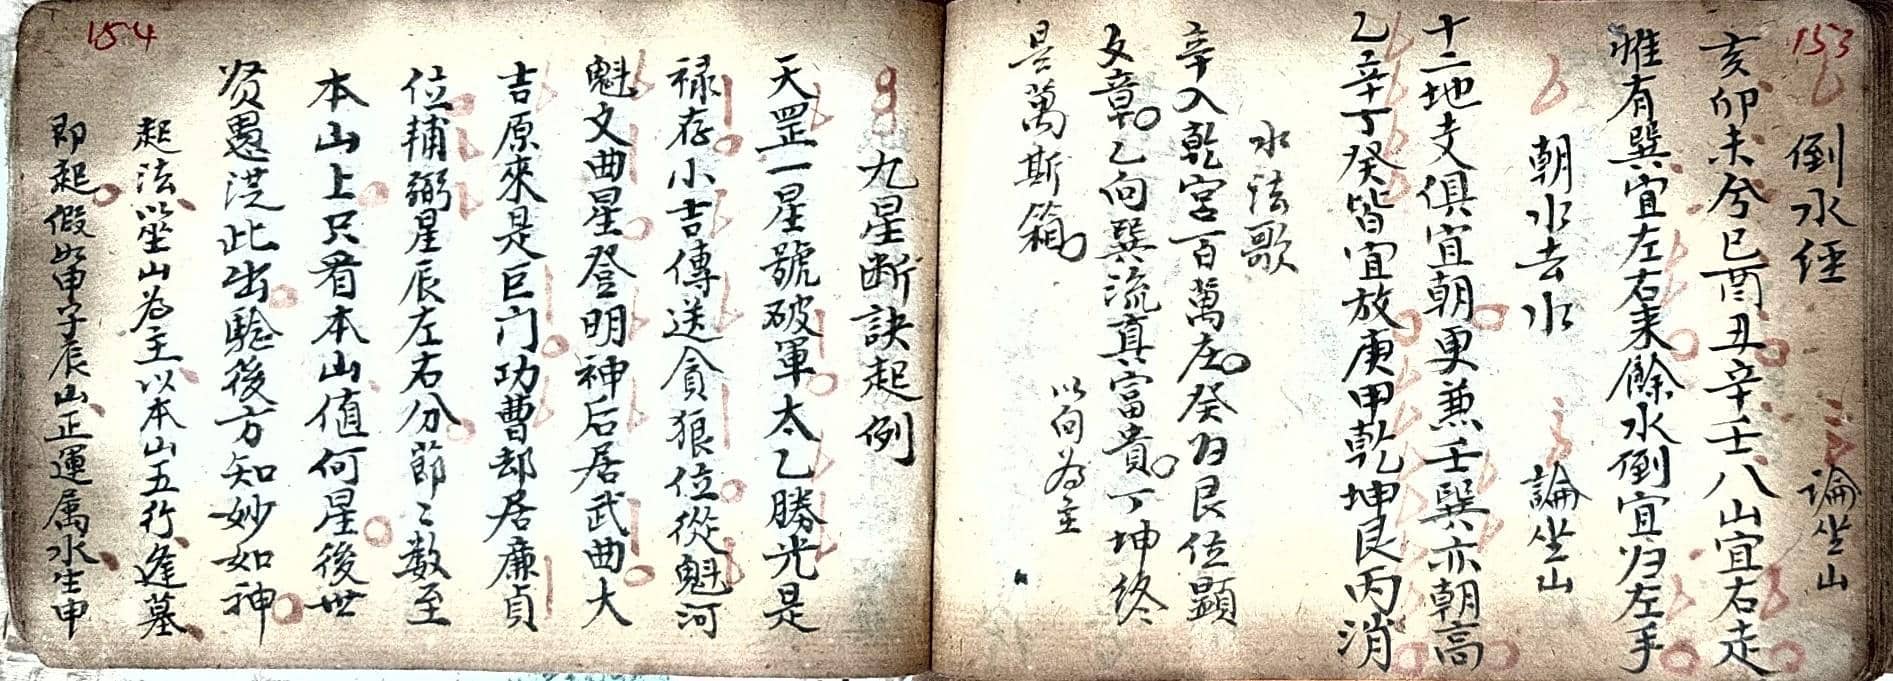 153
倒水経　論坐山
亥卯未兮巳酉丑辛壬八山宜右走
惟有巽宜左右来餘水倒宜归左手
朝水去水　論坐山
十二地支俱宜朝更兼壬巽亦朝高
乙辛丁癸皆宜放庚甲乾坤艮丙消
水法歌
辛入乾宮百萬庄癸归艮位顯
文章乙向巽流真富貴丁坤終
是萬斯箱　以向為主
154
九星断訣起例
天罡一星號破軍太乙勝光是
禄存小吉傳送貪狼位從魁河
魁文曲星登明神后居武曲大
吉原來是巨门功曹却居廉貞
位輔弼星辰左右分節々数至
本山上只看本山值何星後世
贤愚洪此出驗後方知妙如神
起法以坐山為主以本山五行逢墓
即起假如甲子辰山正運属水生申